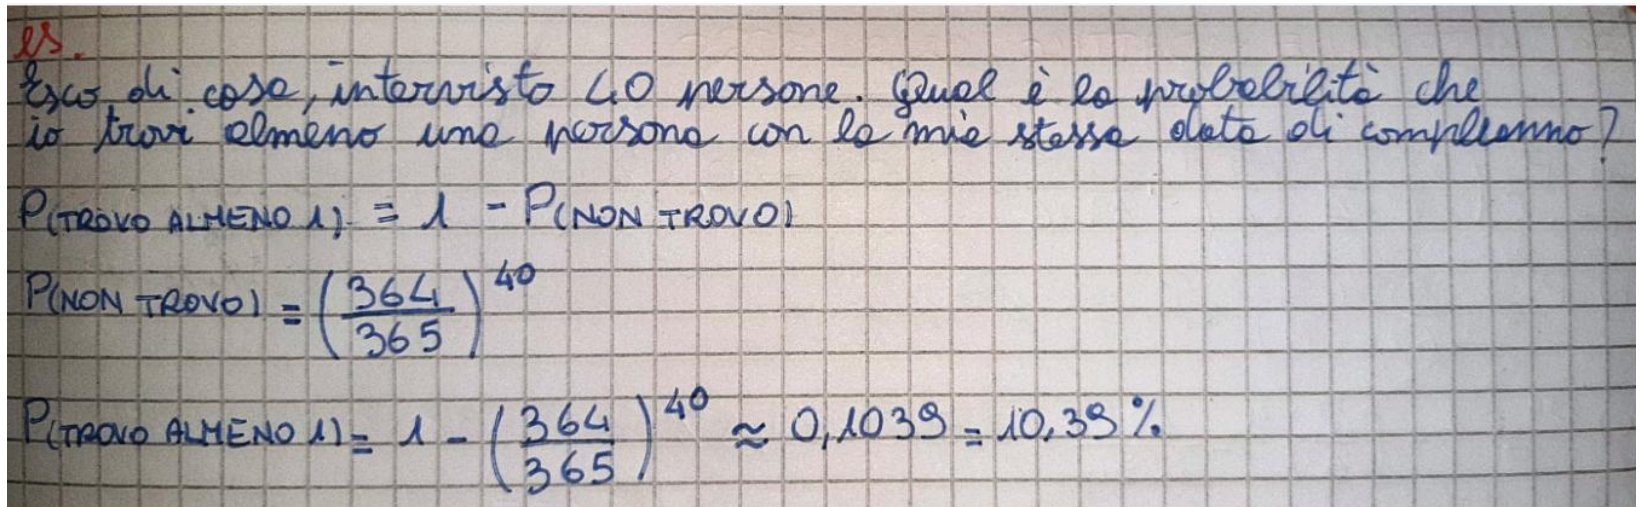 es.
Esco di casa, intervisto 40 persone. Qual è la probabilità che
io trovi almeno una persona con la mia stessa data di compleanno?
P(TROVO ALMENO 1) = 1 - P(NON TROVO)
P(NON TROVO) = (364/365)^40
P(TROVO ALMENO 1) = 1 - (364/365)^40 ≈ 0,1039 = 10,39%